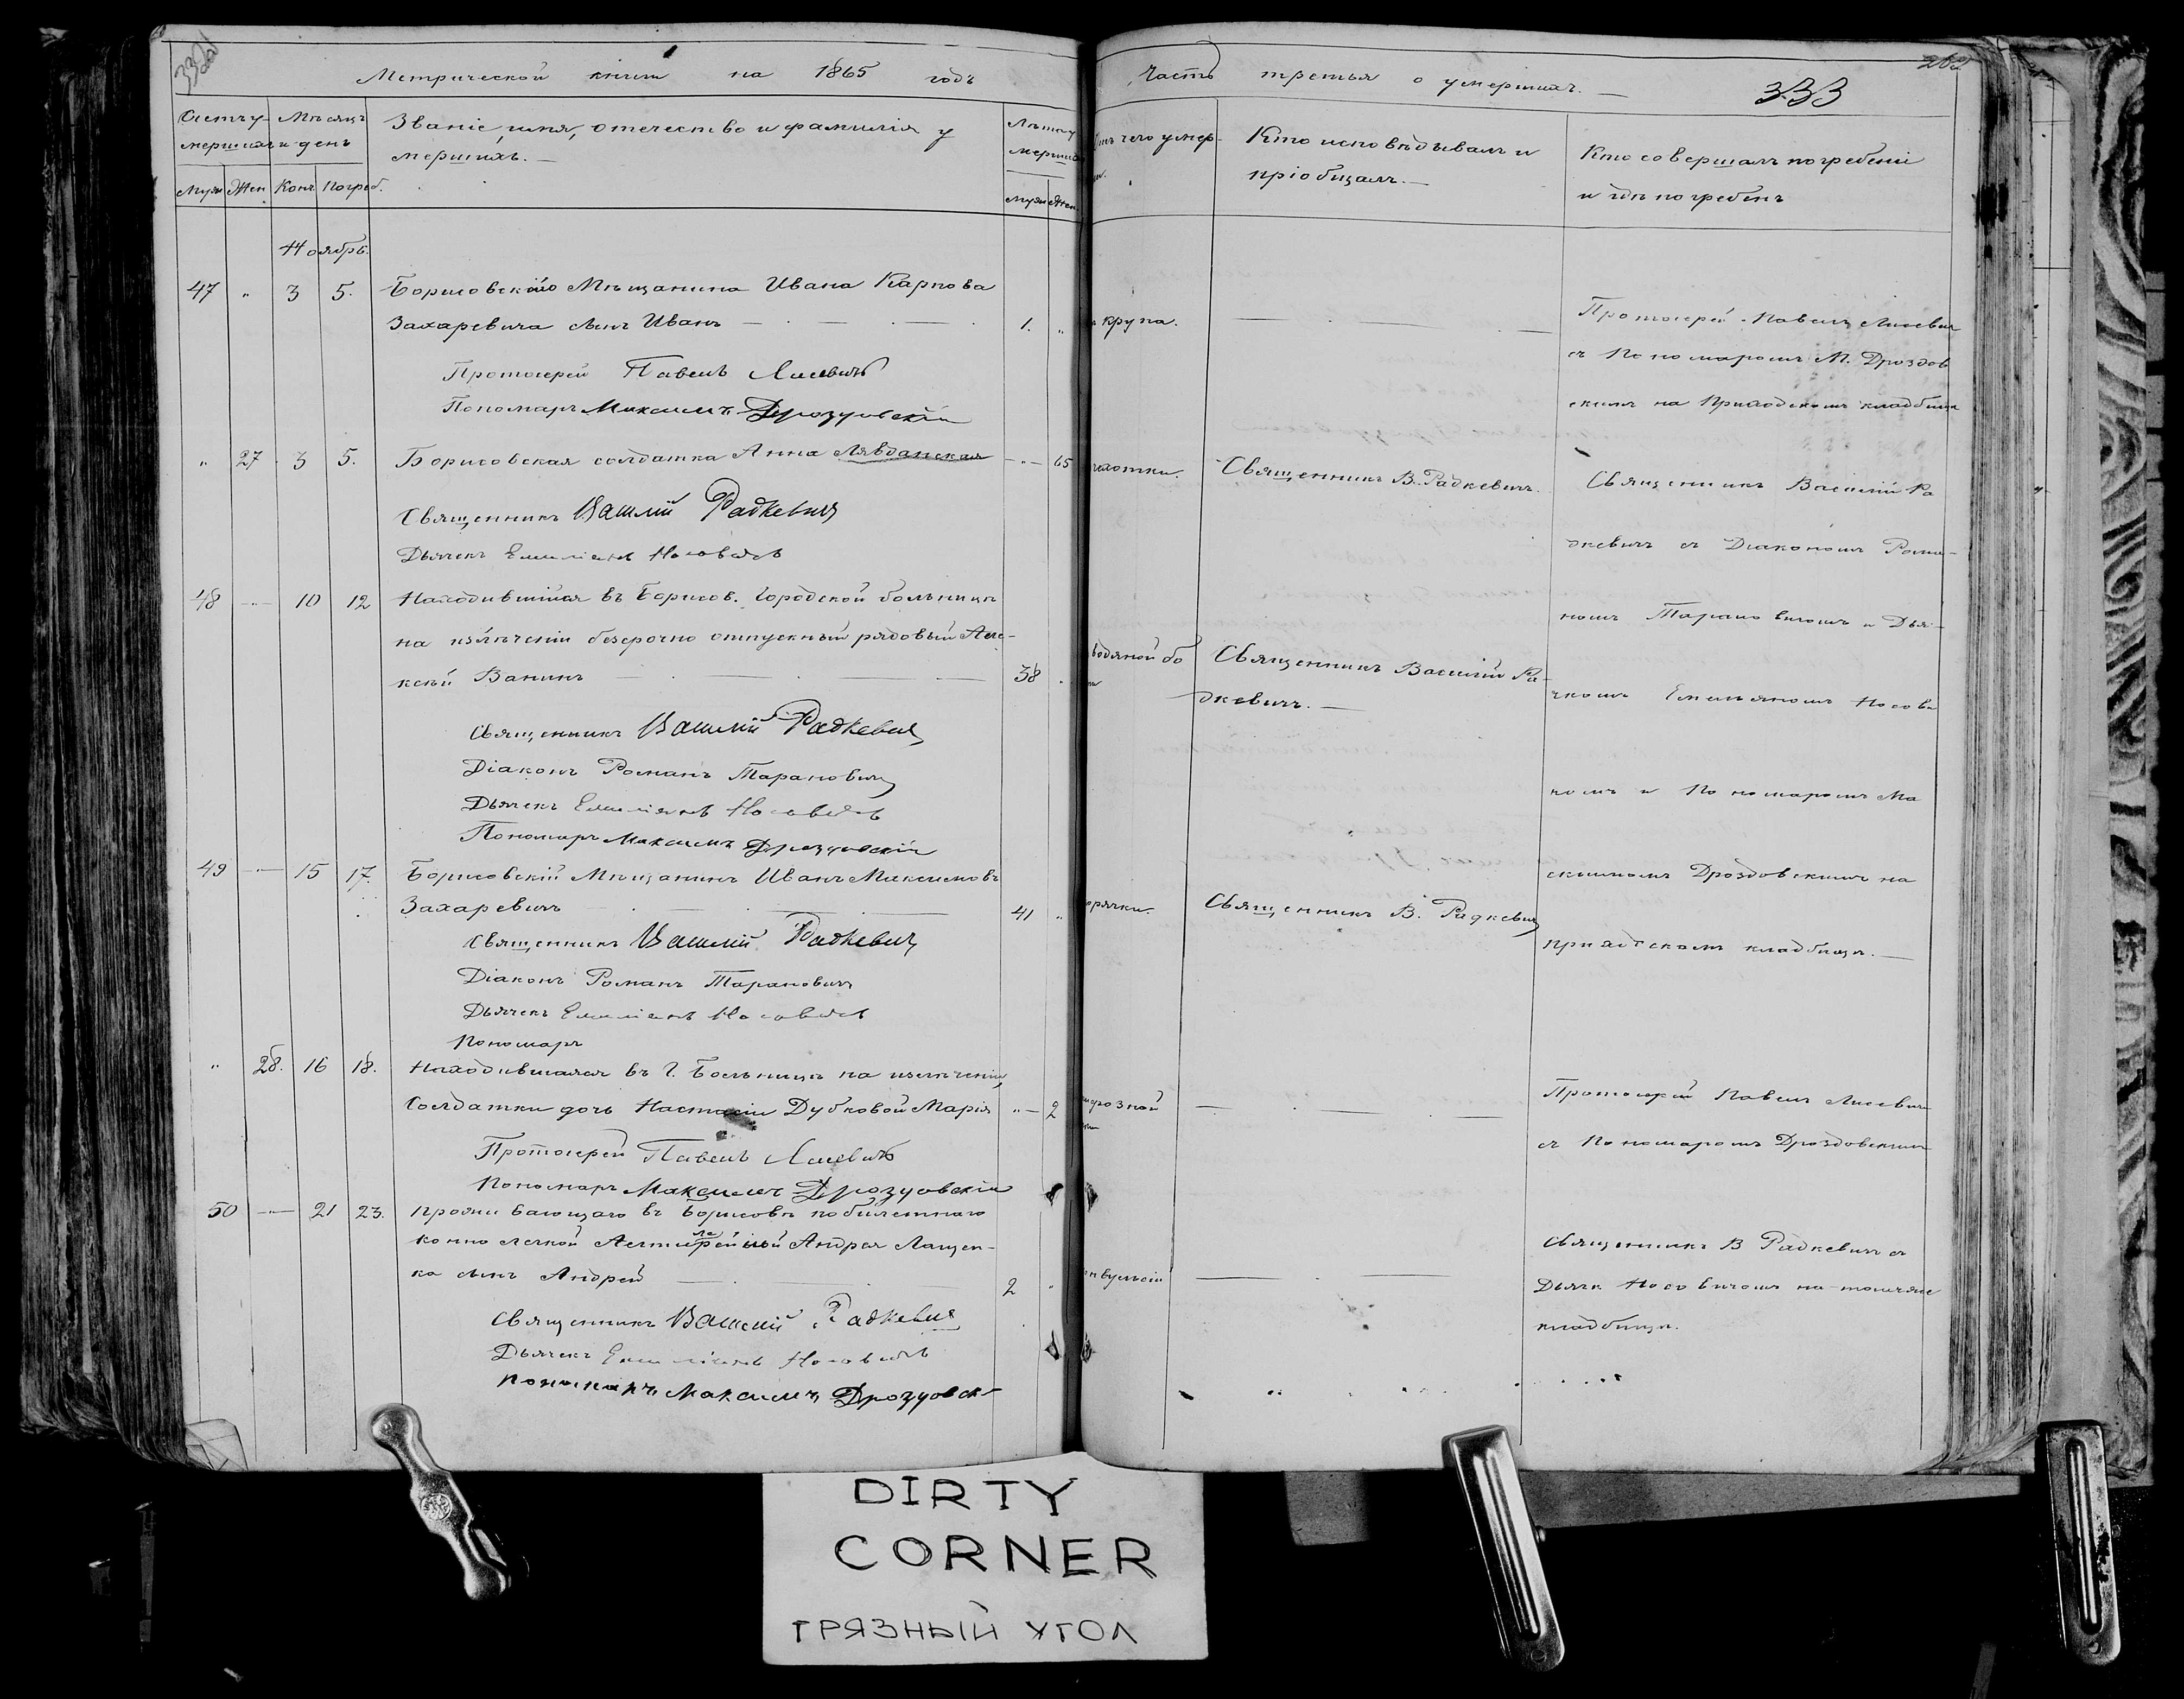 Метрической книги на 1865 годъ
Часть третья о умершихъ.
333
Счетъ у-
мершихъ
Мѣсяцъ
и день
Званіе, имя, отечество и фамилія у
мершихъ.
Лѣта у
мерших
Муж Жен Конч. Погреб.
Муж Жен
чего умер-
Кто исповѣдывалъ и
пріобщалъ.
Кто совершалъ погребеніе
и гдѣ погребенъ
Ноябрь.
47 " 3 5. Борисовскаго Мѣщанина Ивана Карпова
Захаревича сынъ Иванъ 1. " крупа.
Протоіерей Павелъ Лисевичъ
Пономарь Максимъ Дроздовскій
Протоіерей Павелъ Лисевич
съ Пономаромъ М. Дроздов
скимъ на Приходскомъ кладбищѣ
" 27 3 5. Борисовская солдатка Анна Лявданская 65 чахотки. Священникъ В. Радкевичъ.
Священникъ Василій Радкевичъ
Дьячекъ Емиліанъ Носовичъ
Священникъ Василій Ра
дкевичъ съ Діакономъ Рома-
номъ Тарановичомъ и Дья-
чкомъ Емельяномъ Носови
комъ и Пономаромъ Ма
ксимомъ Дроздовскимъ на
приходскомъ кладбищѣ.
48 10 12 Находившійся въ Борисов. Городской больницѣ
на излѣченіи безсрочно отпускный рядовый Але-
ксѣй Ванинъ 38 водяной бо
Священникъ Василій Ра-
дкевичъ.
Священникъ Василій Радкевичъ
Діаконъ Романъ Тарановичъ
Дьячекъ Емиліанъ Носовичъ
Пономарь Максимъ Дроздовскій
49 15 17. Борисовскій Мѣщанинъ Иванъ Максимовъ
Захаревичъ 41 " орячки. Священникъ В. Радкевичъ
Священникъ Василій Радкевичъ
Діаконъ Романъ Тарановичъ
Дьячекъ Емиліанъ Носовичъ
Пономарь
" 28. 16 18. Находившаяся въ Г. Больницѣ на излѣченіи
Солдатки дочь Настасіи Дубковой Марія " 2
Протоіерей Павелъ Лисевичъ
Пономарь Максимъ Дроздовскій
Протоіерей Павелъ Лисевичъ
съ Пономаромъ Дроздовскимъ
50 21 23. Проживающаго въ Борисовѣ побилетнаго
конно легкой Андрея Лащен-
ка сынъ Андрей 2 " нвульсіи
Священникъ Василій Радкевичъ
Дьячекъ Емиліанъ Носовичъ
Пономарь Максимъ Дроздовск
Священникъ В Радкевичъ съ
Дьячк Носовичомъ на
кладбищѣ.
DIRTY
CORNER
ГРЯЗНЫЙ УГОЛ